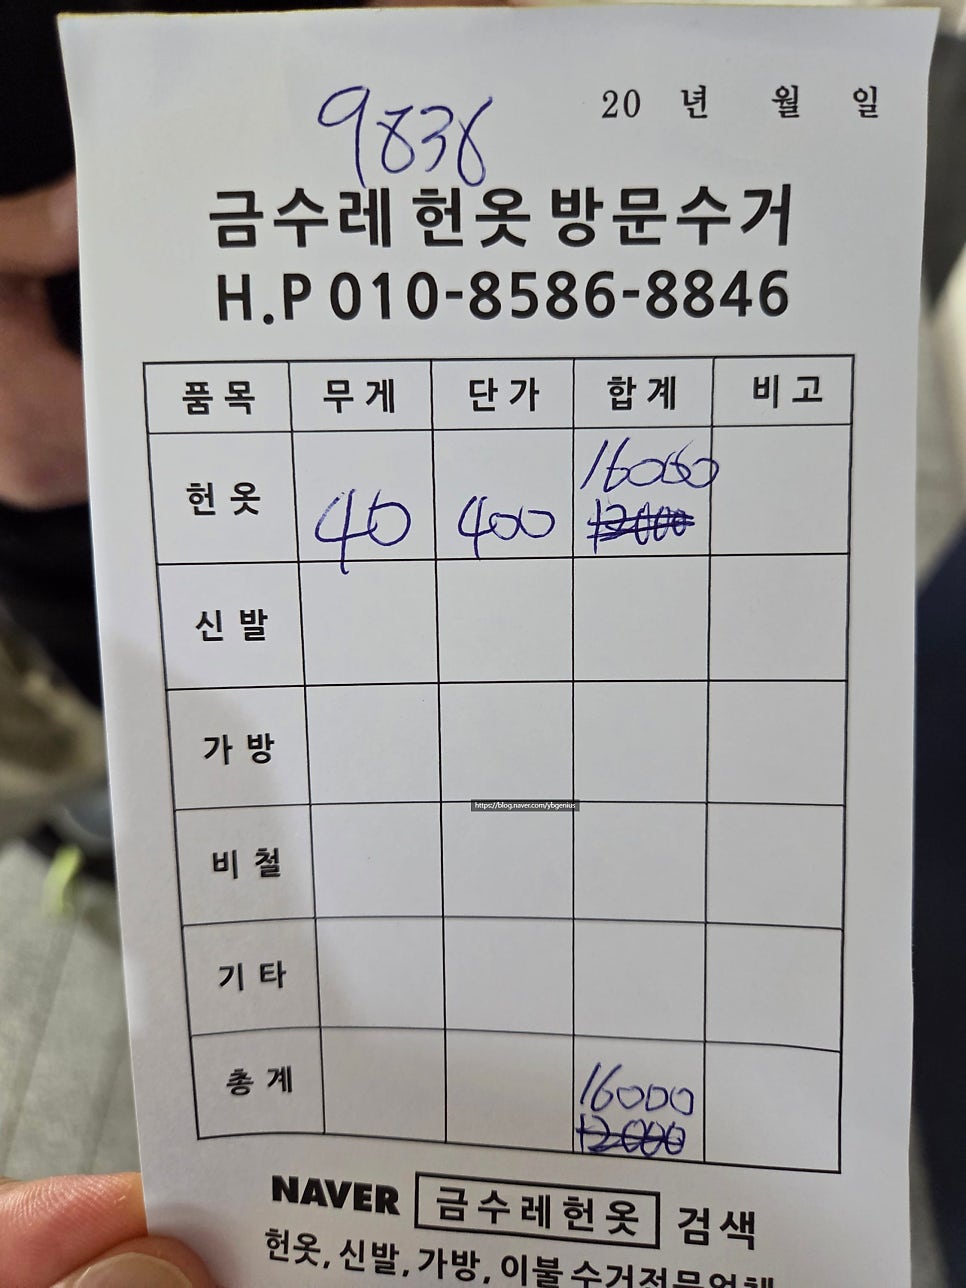 20 년 월 일
9838
금수레 헌옷 방문수거
H.P 010-8586-8846
품목 무게 단가 합계 비고
16000
헌옷 40 400 12000
신발
가방
https://blog.naver.com/ybgenius
비철
기타
16000
총계
12000
NAVER 금수레헌옷 검색
헌옷, 신발, 가방, 이불 수거전문업체